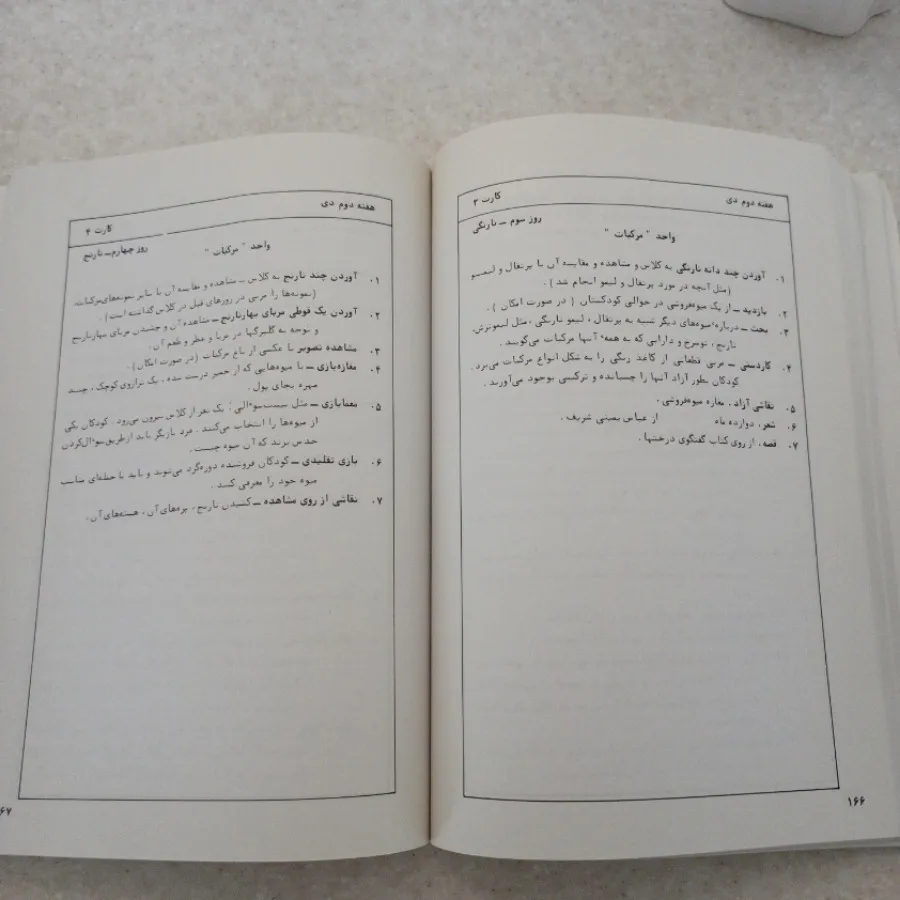 هفته دوم دی
کارت ۳
روز سوم ــ نارنگی
واحد " مرکبات "
۱. آوردن چند دانه نارنگی به کلاس و مشاهده و مقایسه آن با پرتقال و لیمو
(مثل آنچه در مورد پرتقال و لیمو انجام شد ) .
۲. بازدید ــ از یک میوه‌فروشی در حوالی کودکستان ( در صورت امکان ) .
۳. بحث ــ درباره میوه‌های دیگر شبیه به پرتقال ، لیمو نارنگی ، مثل لیموترش،
نارنج ، توسرخ و دارابی که به همهٔ آنها مرکبات می‌گویند .
۴. کاردستی ــ مربی قطعاتی از کاغذ رنگی را به شکل انواع مرکبات می‌برد .
کودکان بطور آزاد آنها را چسبانده و ترکیبی بوجود می‌آورند .
۵. نقاشی آزاد، مغازه میوه‌فروشی .
۶. شعر، دوازده ماه از عباس یمینی شریف .
۷. قصه، از روی کتاب گفتگوی درختها .
۱۶۶
هفته دوم دی
کارت ۴
روز چهارم ــ نارنج
واحد " مرکبات "
۱. آوردن چند نارنج به کلاس ــ مشاهده و مقایسه آن با سایر نمونه‌های مرکبات،
(نمونه‌ها را مربی در روزهای قبل در کلاس گذاشته است ) .
۲. آوردن یک قوطی مربای بهارنارنج ــ مشاهده آن و چشیدن مربای بهارنارنج
و توجه به گلبرگها در مربا و عطر و طعم آن .
۳. مشاهده تصویر یا عکسی از باغ مرکبات (در صورت امکان ) .
۴. مغازه‌بازی ــ با میوه‌هایی که از خمیر درست شده ، یک ترازوی کوچک ، چند
مهره بجای پول .
۵. معمابازی ــ مثل بیست سو‌ٔالی : یک نفر از کلاس بیرون می‌رود . کودکان یکی
از میوه‌ها را انتخاب می‌کنند . فرد بازیگر باید از طریق سو‌ٔال کردن
حدس بزند که آن میوه چیست .
۶. بازی تقلیدی ــ کودکان فروشنده دوره‌گرد می‌شوند و باید با جمله‌ای مناسب
میوه خود را معرفی کنند .
۷. نقاشی از روی مشاهده ــ کشیدن نارنج ، پره‌های آن ، هسته‌های آن .
۶۷